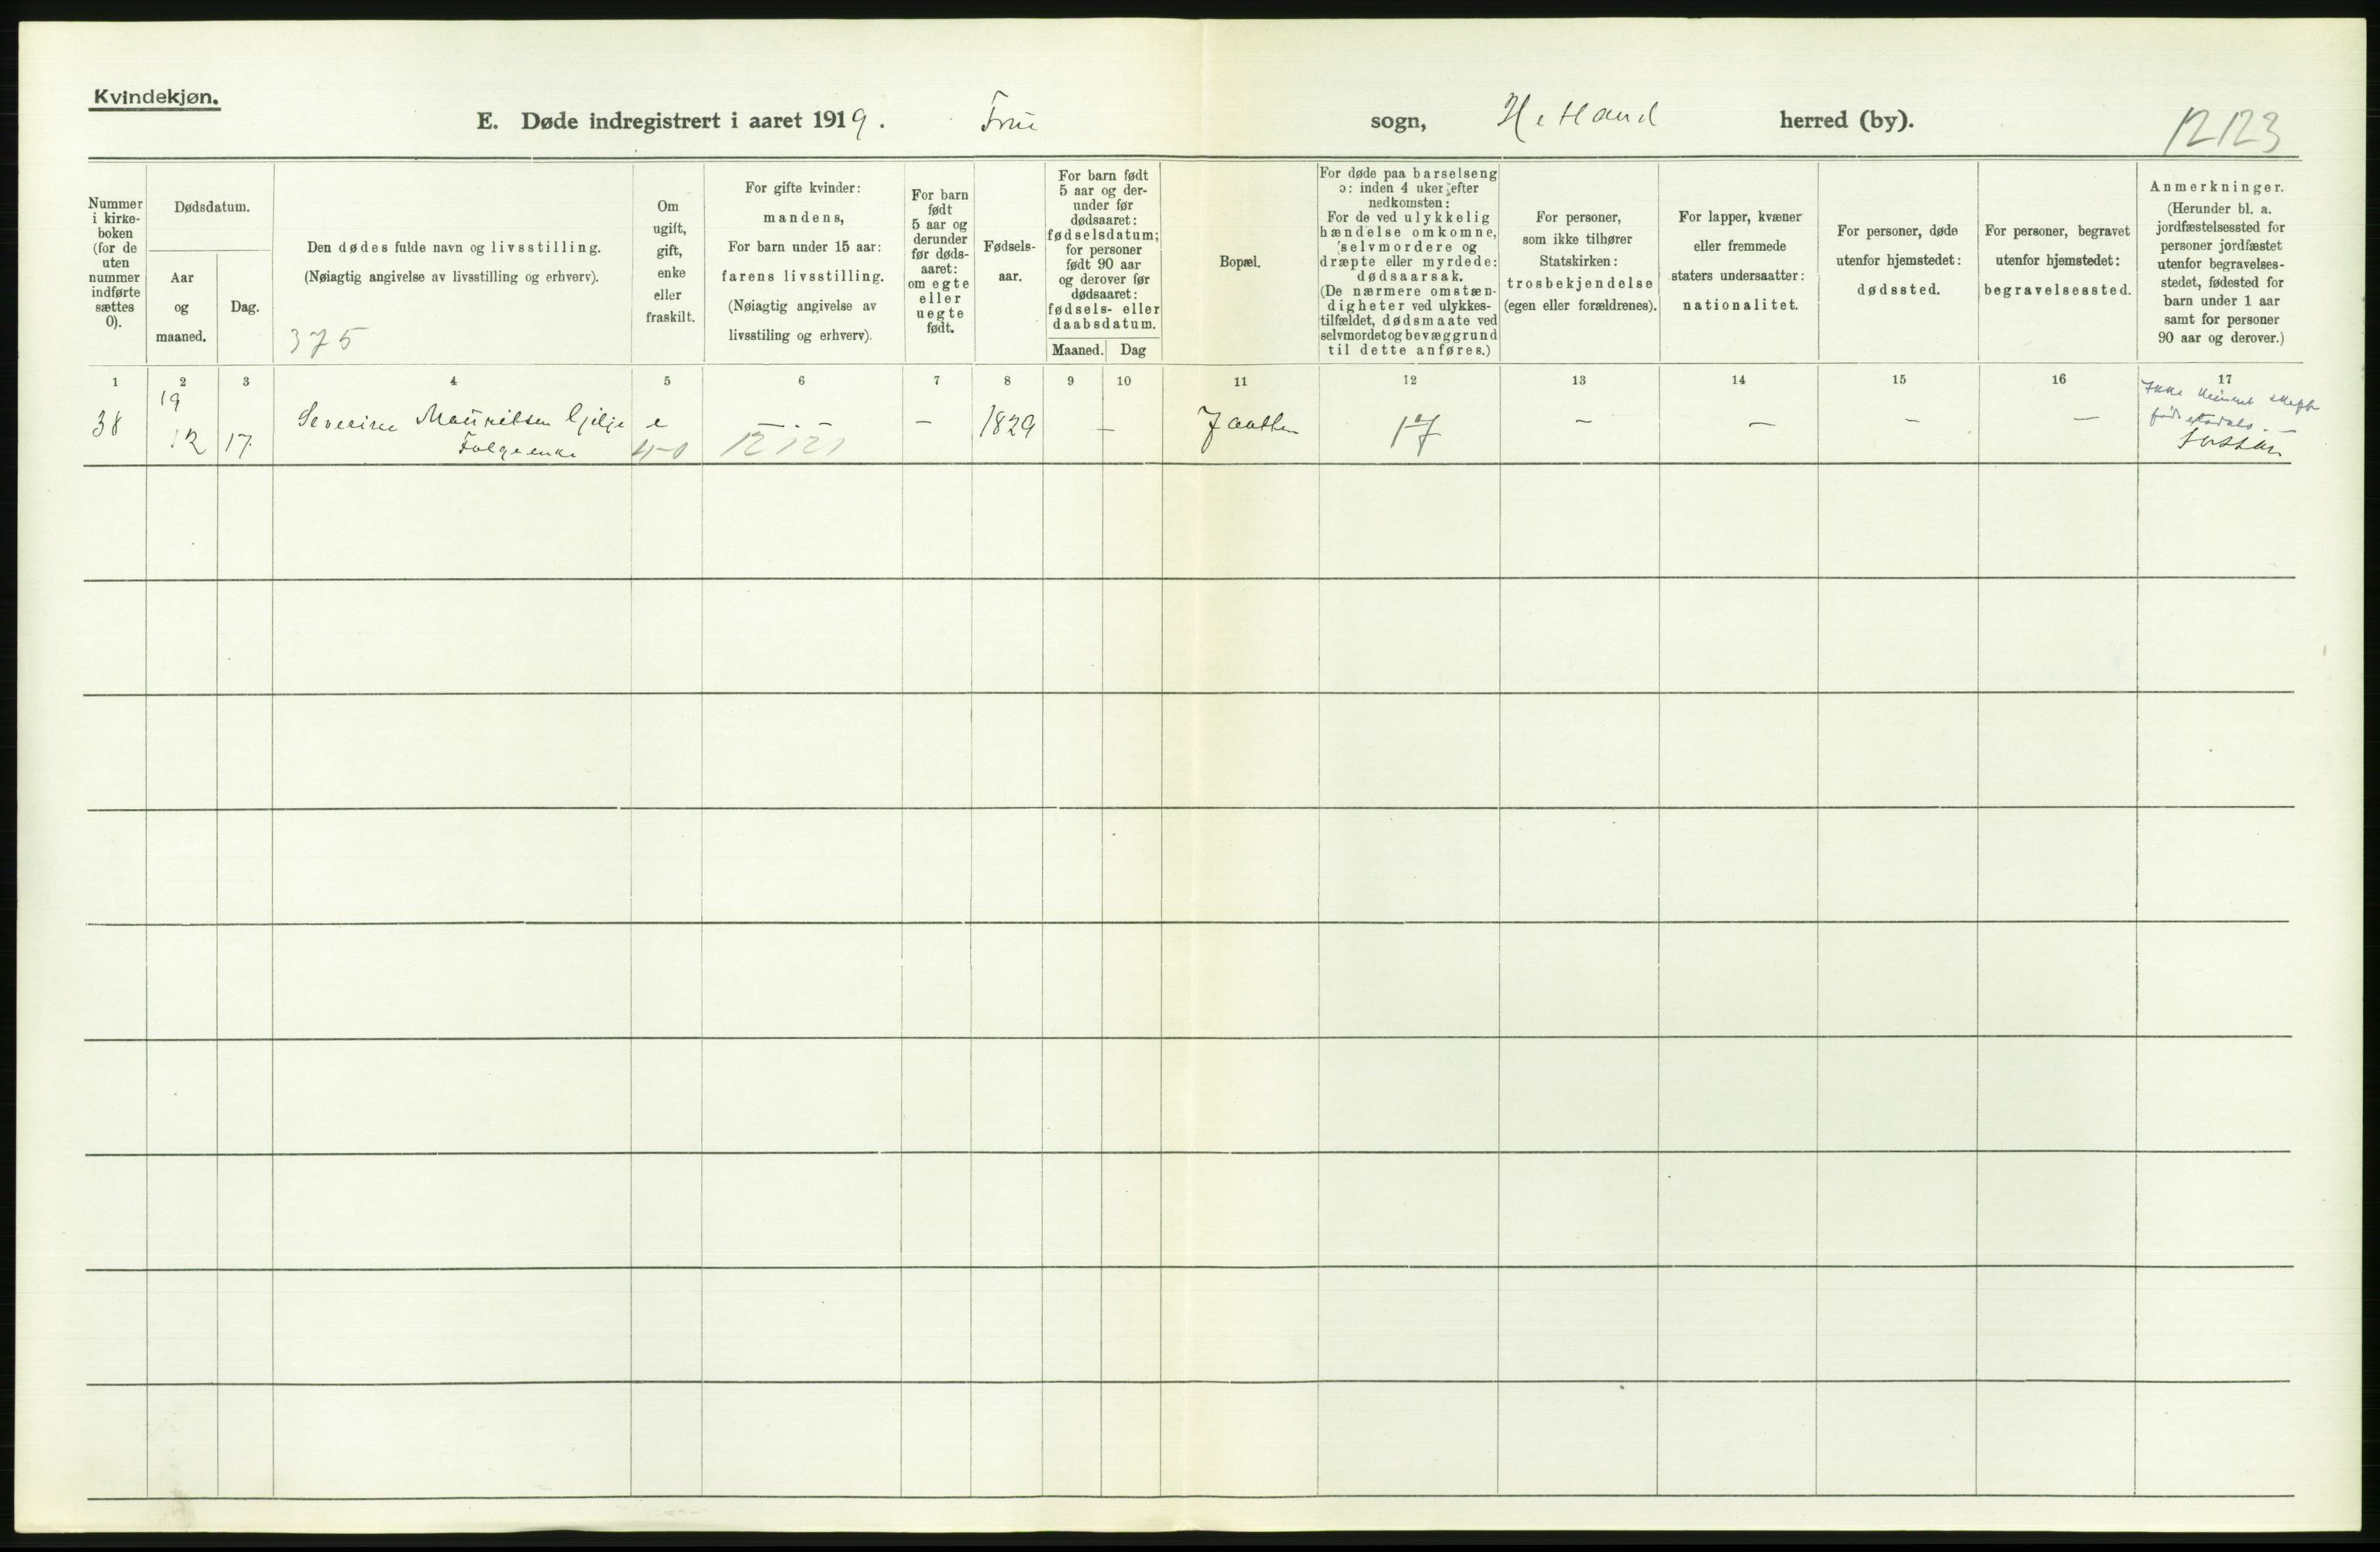 Kvindekjøn.
E. Døde indregistrert i aaret 1919. Frue sogn, Hetland herred (by).
12123
Nummer
i kirke-
boken
(for de
uten
nummer
indførte
sættes
0).
Dødsdatum.
Aar
og
maaned.
Dag.
Den dødes fulde navn og livsstilling.
(Nøiagtig angivelse av livsstilling og erhverv).
375
Om
ugift,
gift,
enke
eller
fraskilt.
For gifte kvinder:
mandens,
For barn under 15 aar:
farens livsstilling.
(Nøiagtig angivelse av
livsstiling og erhverv).
For barn
født
5 aar og
derunder
før døds-
aaret:
om egte
eller
uegte
født.
Fødsels-
aar.
For barn født
5 aar og der-
under før
dødsaaret:
fødselsdatum;
for personer
født 90 aar
og derover før
dødsaaret:
fødsels- eller
daabsdatum.
Maaned. Dag
Bopæl.
For døde paa barselseng
ɔ: inden 4 uker efter
nedkomsten:
For de ved ulykkelig
hændelse omkomne,
selvmordere og
dræpte eller myrdede:
dødsaarsak.
(De nærmere omstæn-
digheter ved ulykkes-
tilfældet, dødsmaate ved
selvmordet og bevæggrund
til dette anføres.)
For personer,
som ikke tilhører
Statskirken:
trosbekjendelse
(egen eller forældrenes).
For lapper, kvæner
eller fremmede
staters undersaatter:
nationalitet.
For personer, døde
utenfor hjemstedet:
dødssted.
For personer, begravet
utenfor hjemstedet:
begravelsessted.
Anmerkninger.
(Herunder bl. a.
jordfæstelsessted for
personer jordfæstet
utenfor begravelses-
stedet, fødested for
barn under 1 aar
samt for personer
90 aar og derover.)
1 2 3 4 5 6 7 8 9 10 11 12 13 14 15 16 17
19
38 12 17. Severine Mauritsen Gilje e — . — — 1829 — Jaatten 17 — — — — Ikke
Folgeenke 40 12121